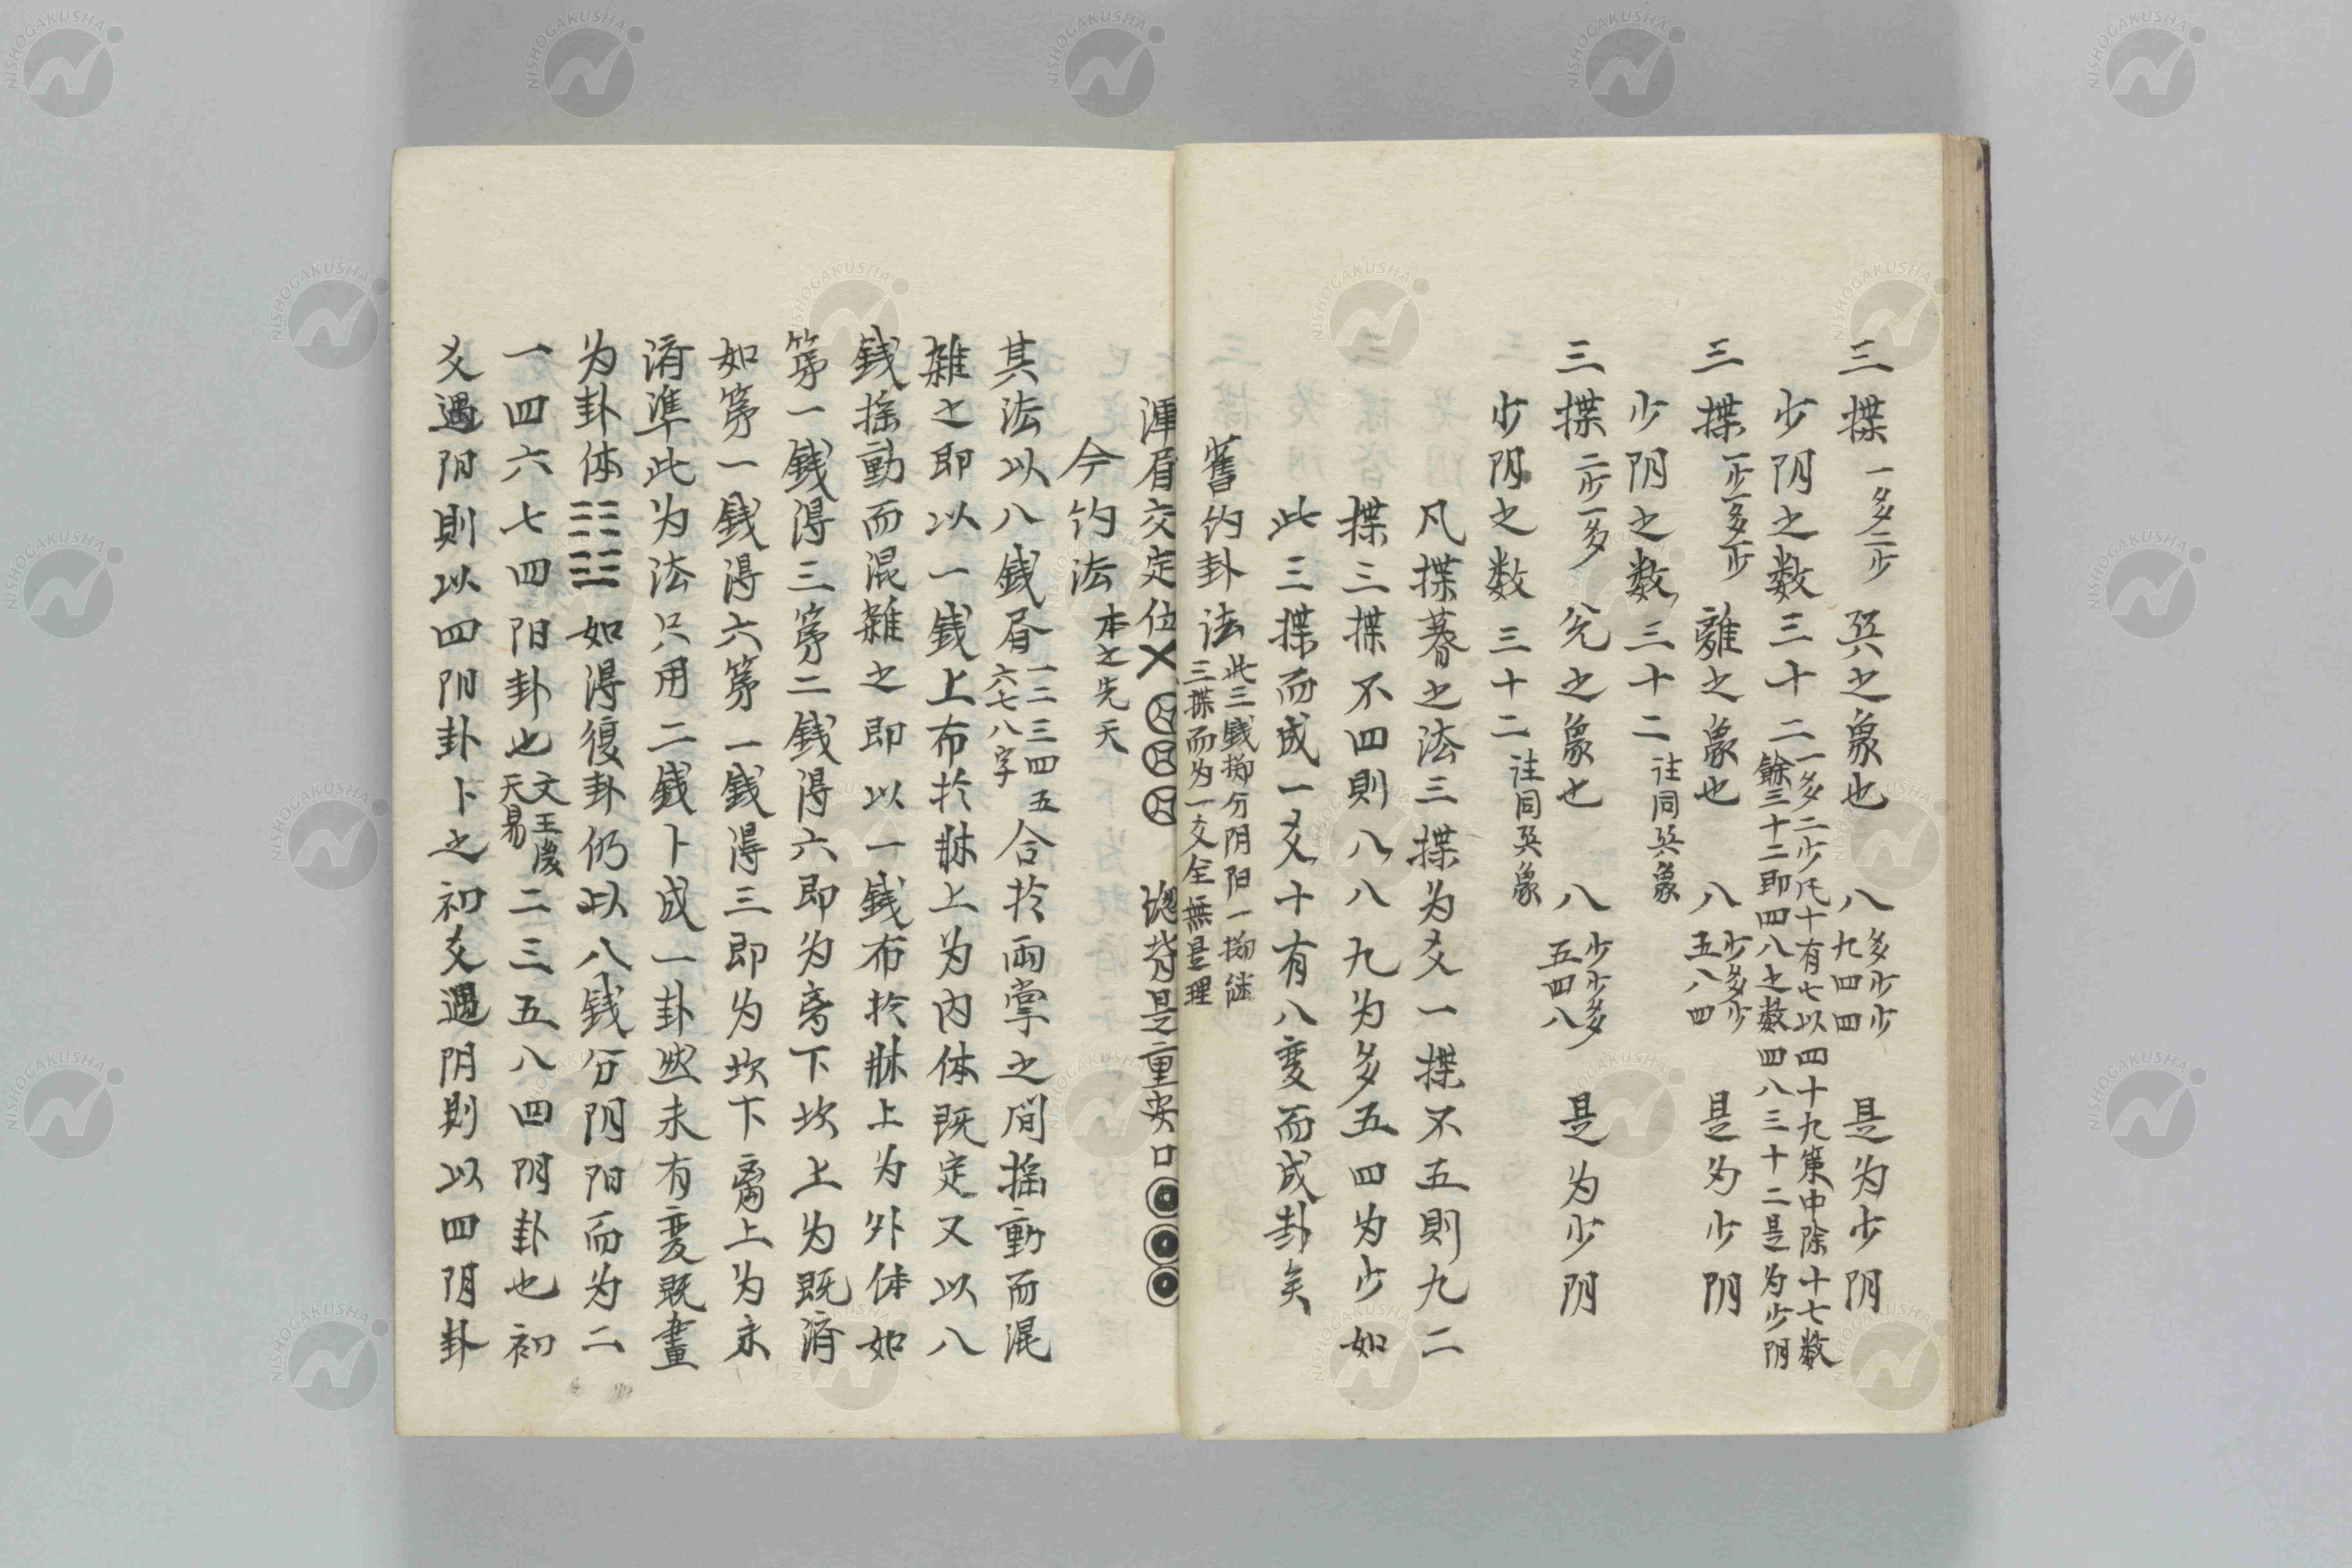 三揲一多二少 巽之象也 八多少少九四四 是为少阴
少阴之数三十二一多二少凡十有七以四十九策中除十七数餘三十二即四八之数四八三十二是为少阴
三揲一少一多一少 離之象也 八少多少五八四 是为少阴
少阴之数三十二註同巽象
三揲二少一多 兌之象也 八少少多五四八 是为少阴
少阴之数三十二註同巽象
凡揲蓍之法三揲为爻一揲不五則九二
揲三揲不四則八八九为多五四为少如
此三揲而成一爻十有八変而成卦矣
舊灼卦法此三錢擲分阴阳一擲继三揲而为一爻全無是理
渾眉交定位 是重安口
今灼法本之先天
其法以八錢眉一二三四五六七八字合於兩掌之間搖動而混
雜之即以一錢上布於牀上为内体既定又以八
錢搖動而混雜之即以一錢布於牀上为外体如
第一錢得三第二錢得六即为离下坎上为既済
如第一錢得六第一錢得三即为坎下离上为未
済準此为法只用二錢卜成一卦然未有变既畫
为卦体如得復卦仍以八錢分阴阳而为二
一四六七四阳卦也文王後天易二三五八四阴卦也初
爻遇阳則以四阳卦卜之初爻遇阴則以四阴卦
NISHOGAKUSHA